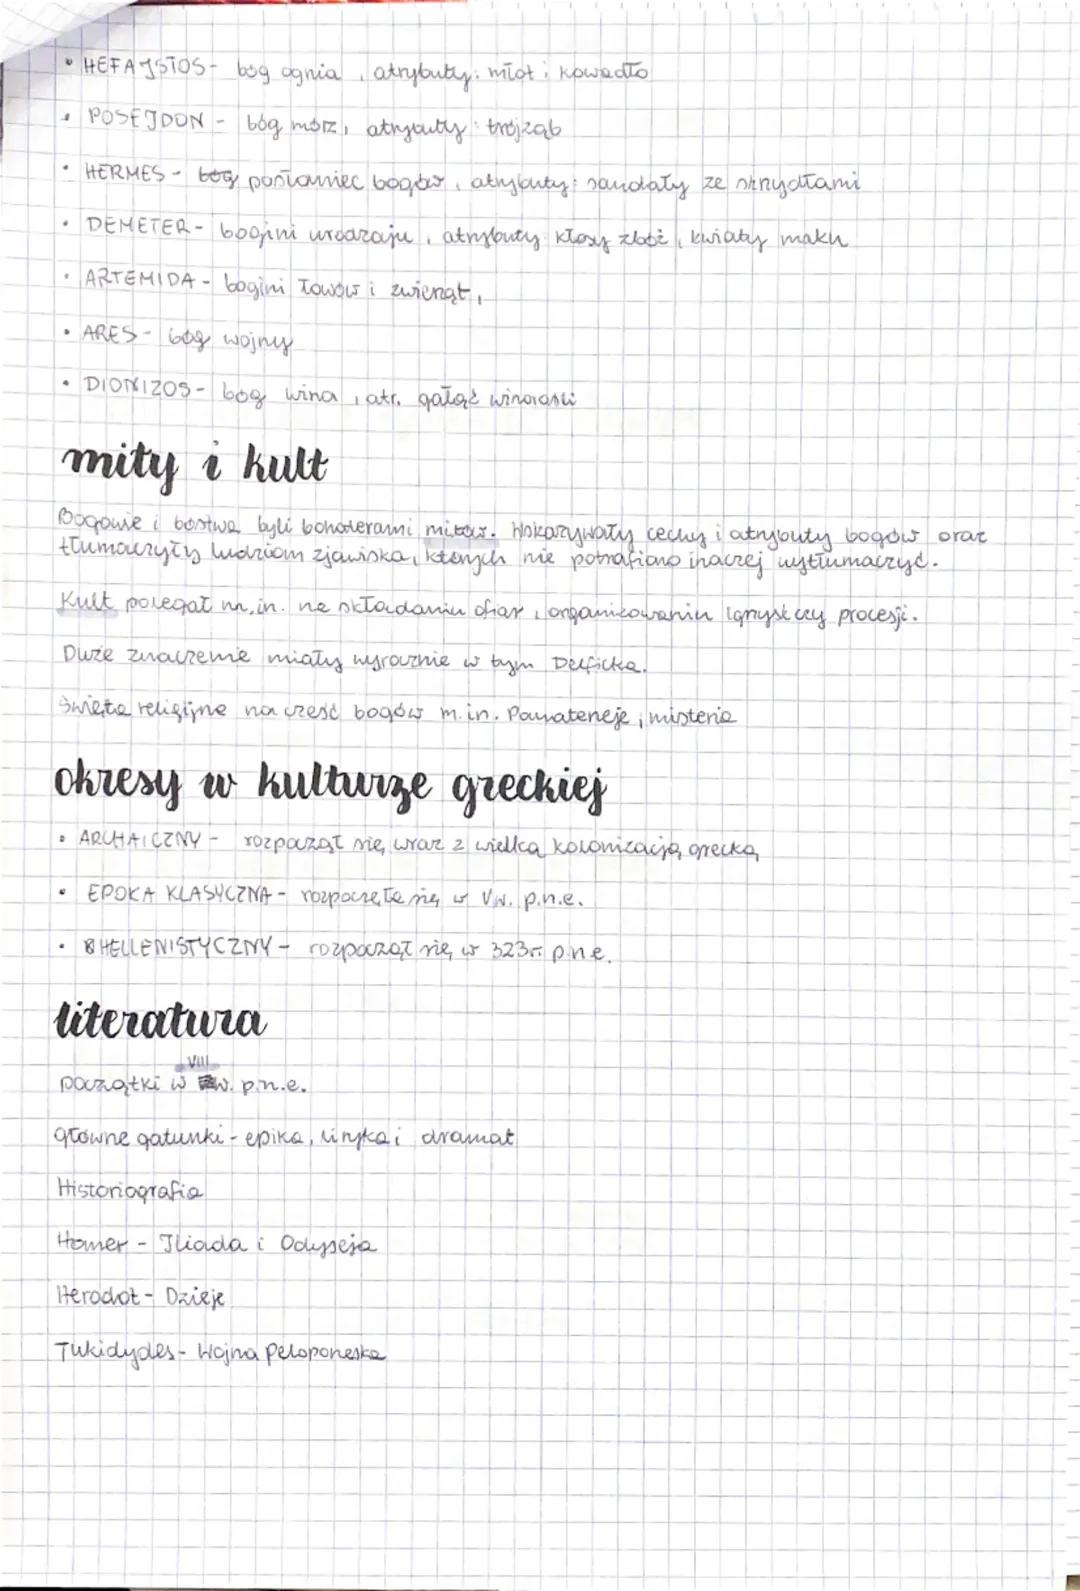 • HEFAJSTOS - bóg ognia, atrybuty: młot i kowadło
• POSEJDON - bóg mórz, atrybuty: trójząb
• HERMES - bóg posłaniec bogów, atrybuty: sandały ze skrzydłami
• DEMETER - bogini urodzaju, atrybuty kłosy zbóż, kwiaty maku
• ARTEMIDA - bogini łowów i zwierząt,
• ARES - bóg wojny
• DIONIZOS - bóg wina, atr. gałąź winorośli
mity i kult
Bogowie i bóstwa byli bohaterami mitów. Wskazywały cechy i atrybuty bogów oraz
tłumaczyły ludziom zjawiska, których nie potrafiano inaczej wytłumaczyć.
Kult polegał m.in. na składaniu ofiar, organizowaniu igrzysk czy procesji.
Duże znaczenie miały wyrocznie w tym Delficka.
Święta religijne na cześć bogów m.in. Panateneje, misteria
okresy w kulturze greckiej
• ARCHAICZNY - rozpoczął się wraz z wielką kolonizacją grecką
• EPOKA KLASYCZNA - rozpoczęła się w V w. p.n.e.
• HELLENISTYCZNY - rozpoczął się w 323r. p.n.e.
literatura
początki w VIII w. p.n.e.
główne gatunki - epika, liryka i dramat
Historiografia
Homer - Iliada i Odyseja
Herodot - Dzieje
Tukidydes - Wojna Peloponeska